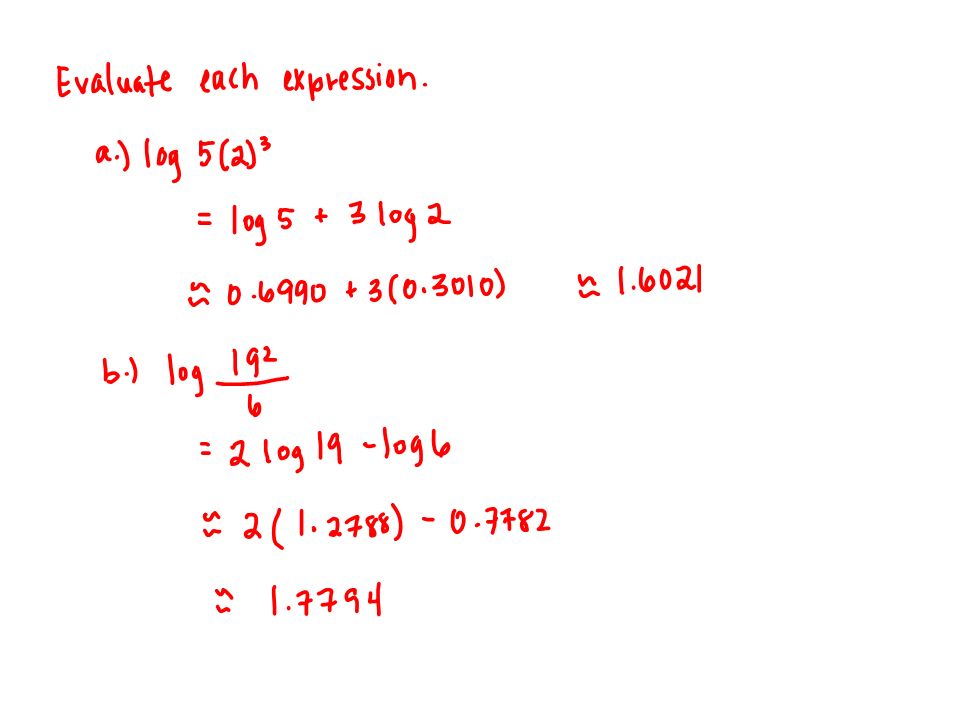 Evaluate each expression.
a.) log 5(2)³
= log 5 + 3 log 2
≈ 0.6990 + 3(0.3010) ≈ 1.6021
b.) log 19² / 6
= 2 log 19 - log 6
≈ 2(1.2788) - 0.7782
≈ 1.7794